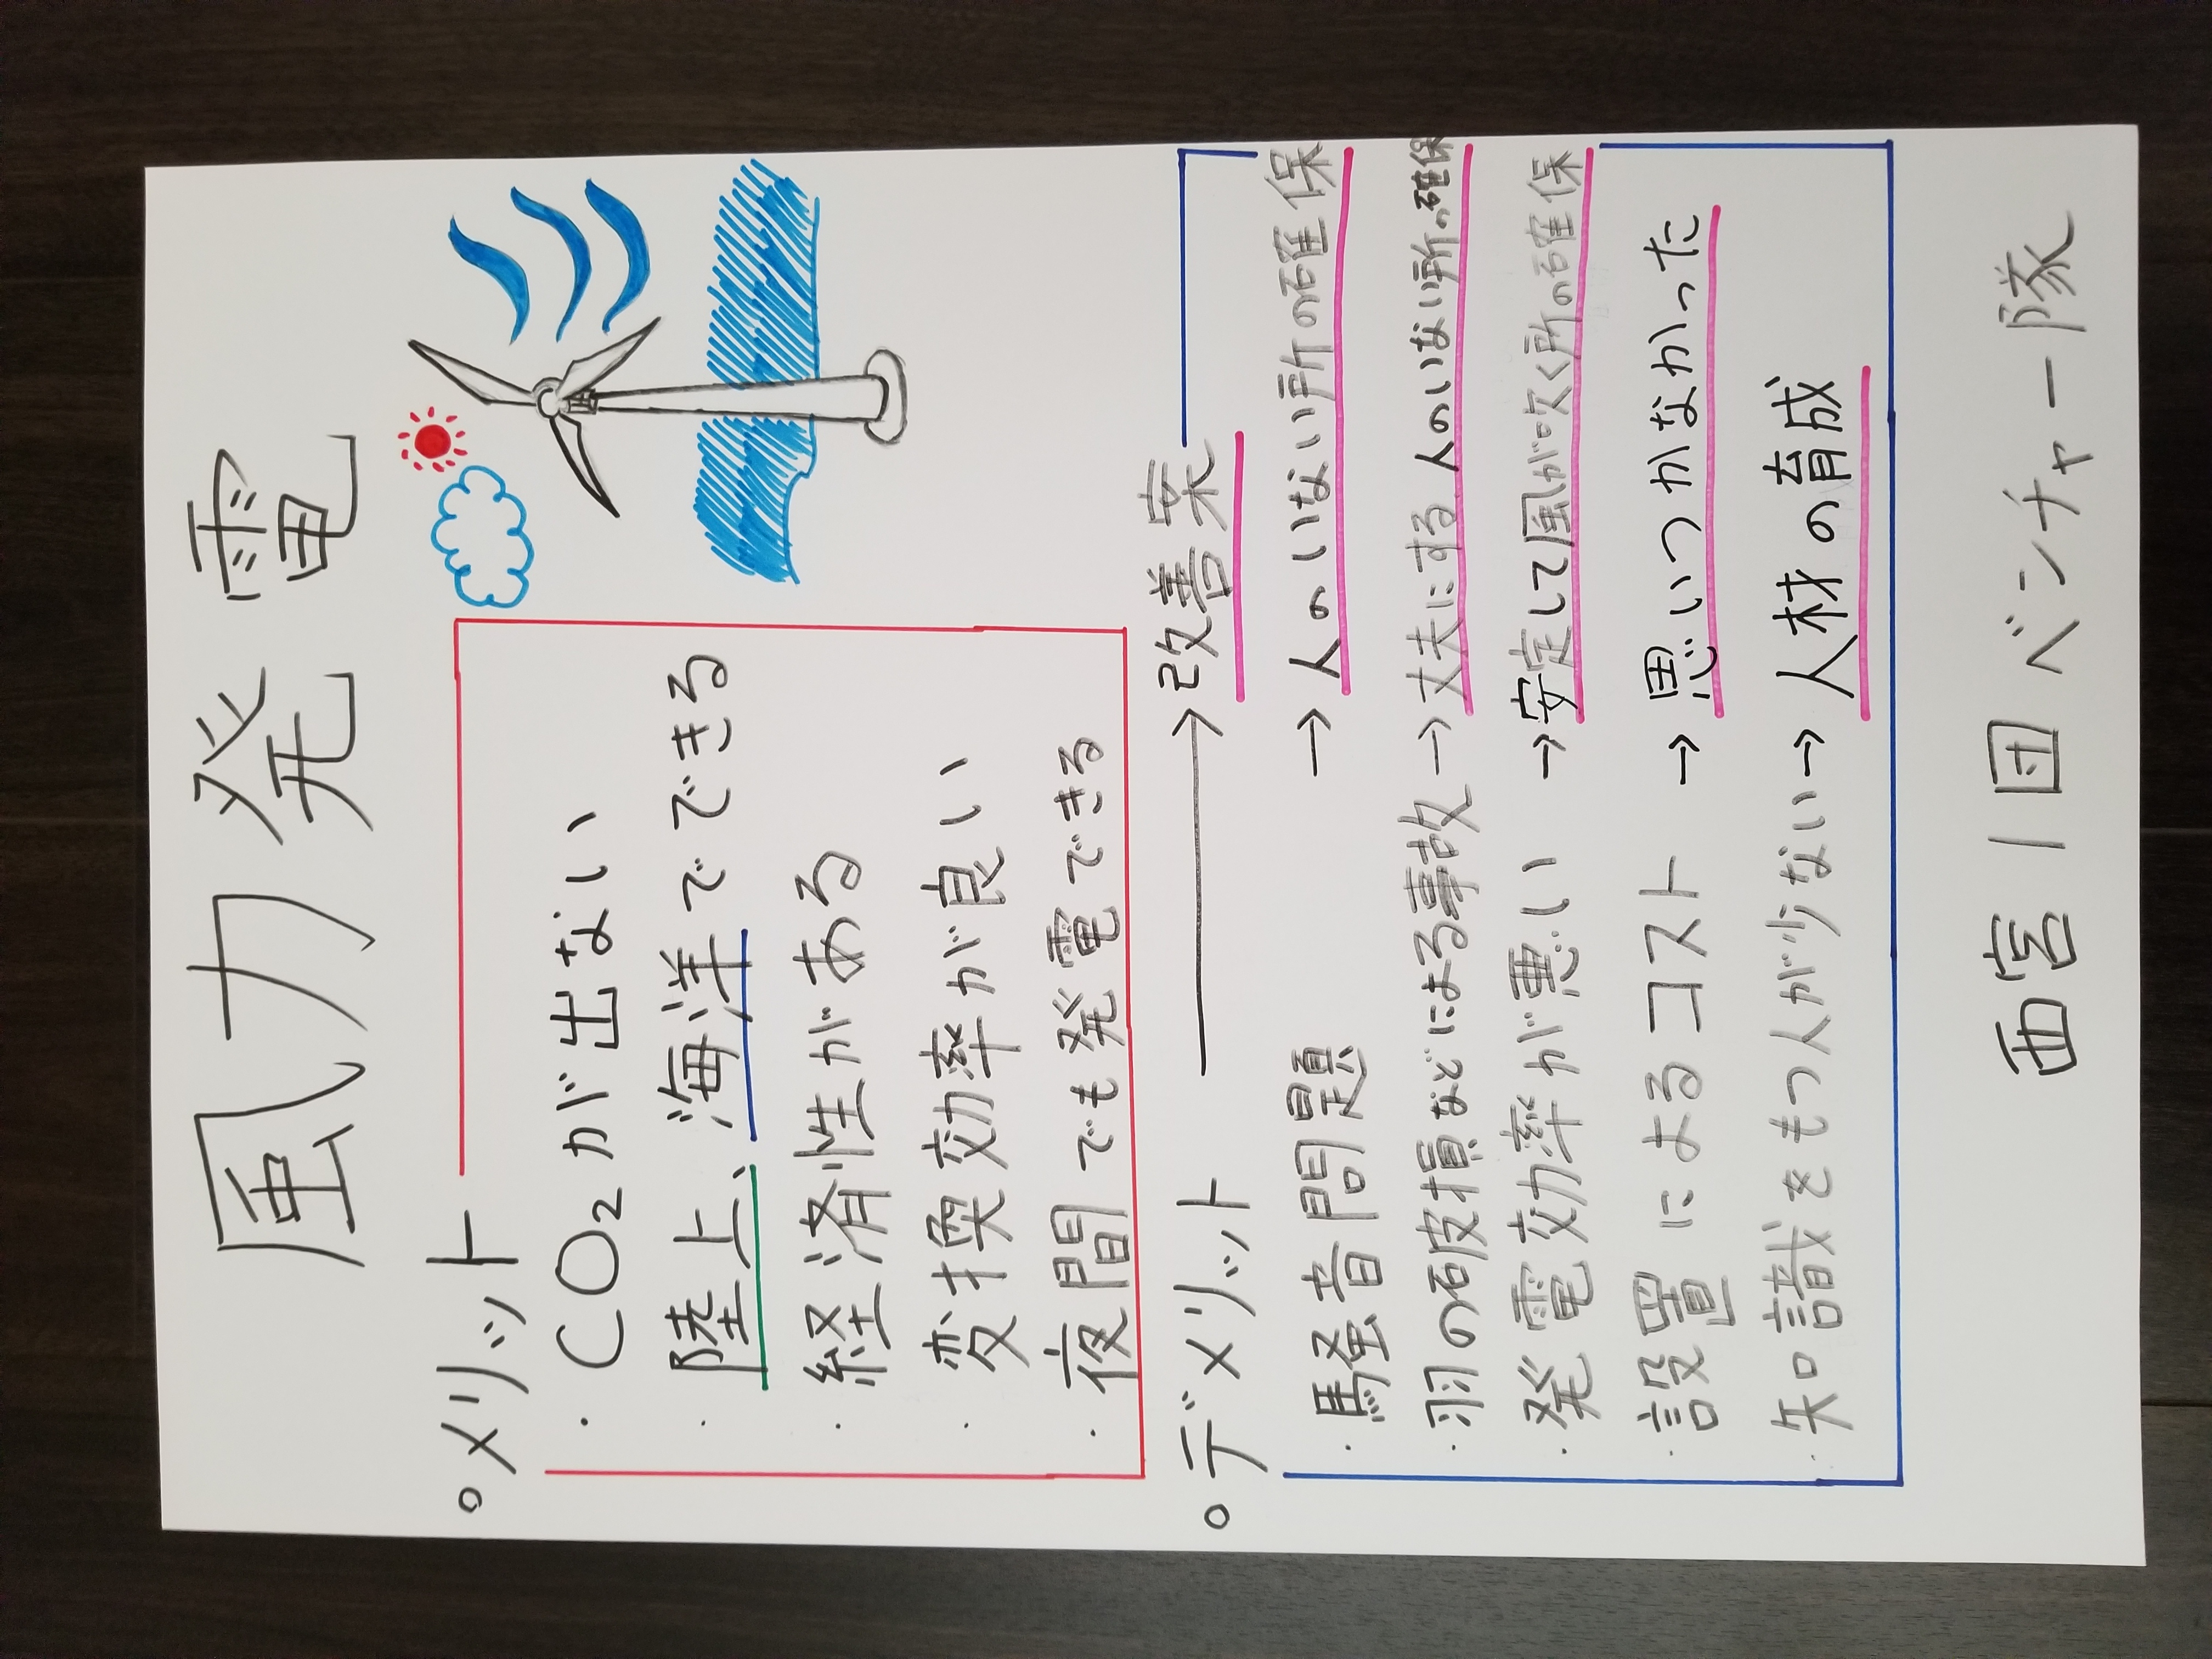 風力発電
○メリット
・CO₂が出ない
・陸上、海洋でできる
・経済性がある
・変換効率が良い
・夜間でも発電できる
○デメリット → 改善案
・騒音問題 → 人のいない所の確保
・羽の破損などによる事故 → 丈夫にする 人のいない所の確保
・発電効率が悪い → 安定して風が吹く所の確保
・設置によるコスト → 思いつかなかった
・知識をもつ人が少ない → 人材の育成
西宮1団ベンチャー隊